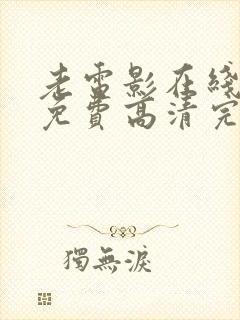 老電影在綫
免費高清完
獨無淚